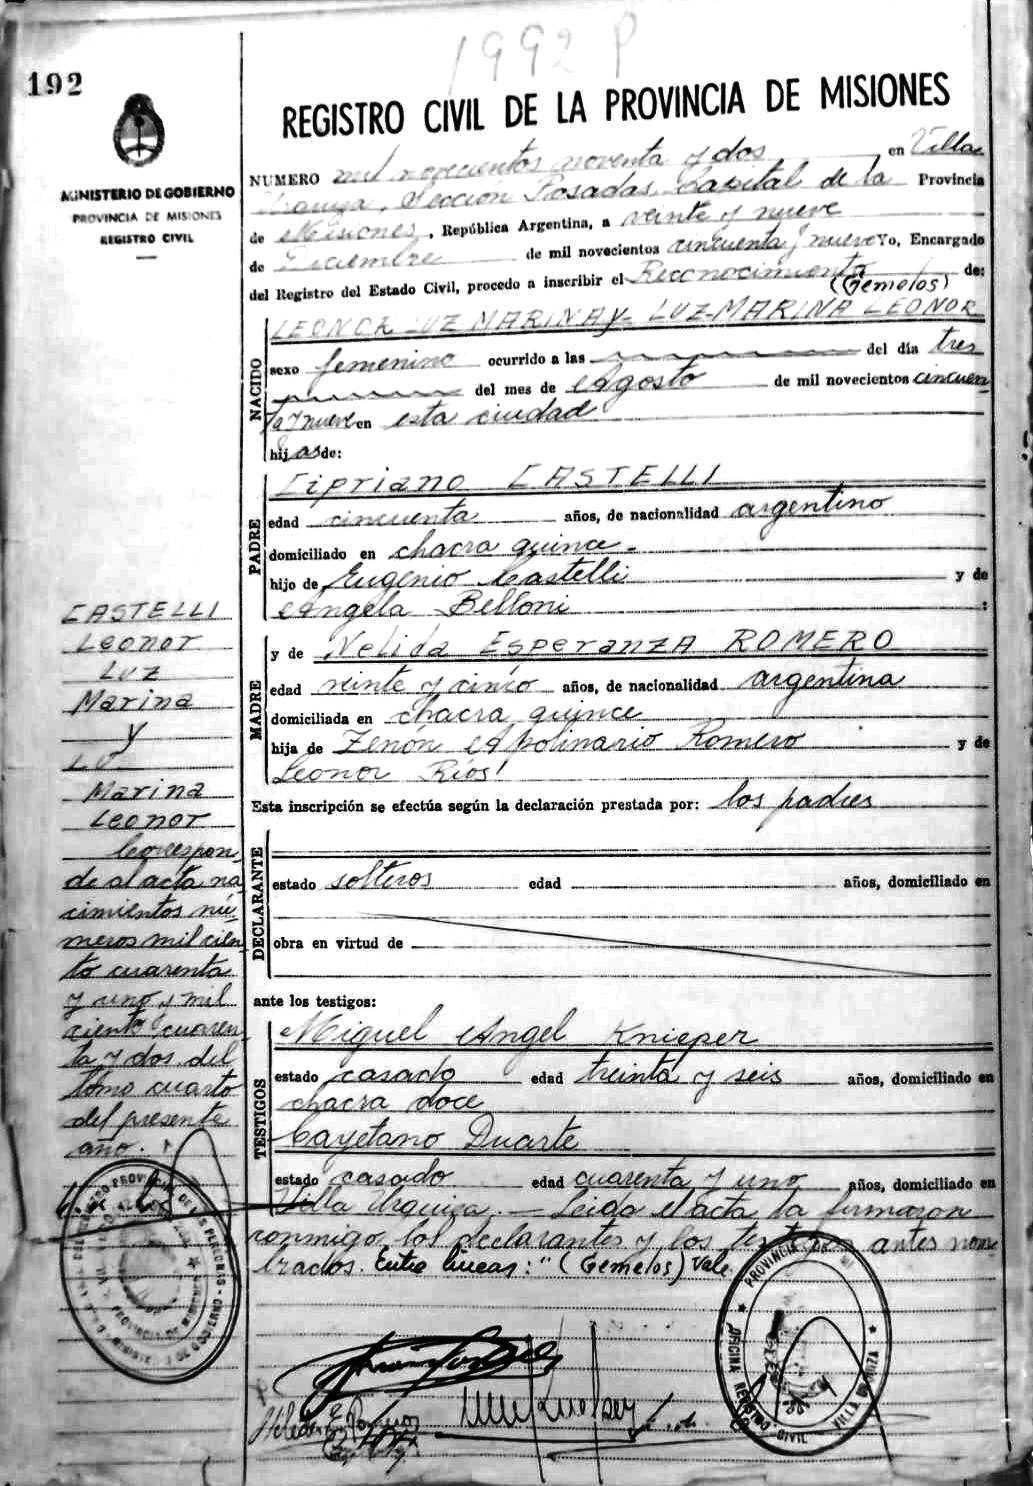 1992 P
192
REGISTRO CIVIL DE LA PROVINCIA DE MISIONES
MINISTERIO DE GOBIERNO
PROVINCIA DE MISIONES
REGISTRO CIVIL
NUMERO mil novecientos noventa y dos en Villa
Urquiza, Sección Posadas Capital de la Provincia
de Misiones, República Argentina, a veinte y nueve
de Diciembre de mil novecientos cincuenta y nueve Yo, Encargado
del Registro del Estado Civil, procedo a inscribir el Reconocimiento de:
(Gemelos)
NACIDO
LEONOR LUZ MARINA y LUZ-MARINA LEONOR
sexo femenino ocurrido a las del día tres
del mes de Agosto de mil novecientos cincuen
ta y nueve en esta ciudad
hijas de:
PADRE
Cipriano CASTELLI
edad cincuenta años, de nacionalidad argentino
domiciliado en chacra quince.
hijo de Eugenio Castelli y de
Angela Belloni :
MADRE
y de Nelida Esperanza ROMERO
edad veinte y cinco años, de nacionalidad argentina
domiciliada en chacra quince
hija de Zenón Apolinario Romero y de
Leonor Ríos
Esta inscripción se efectúa según la declaración prestada por: los padres
DECLARANTE
estado solteros edad años, domiciliado en
obra en virtud de
ante los testigos:
TESTIGOS
Miguel Angel Knieper
estado casado edad treinta y seis años, domiciliado en
chacra doce
Cayetano Duarte
estado casado edad cuarenta y uno años, domiciliado en
Villa Urquiza. — Leída el acta la firmaron
conmigo los declarantes y los testigos antes nom
brados. Entre líneas: "(Gemelos) Vale.
CASTELLI
Leonor
Luz
Marina
y
Marina
Leonor
Correspon
de al acta na
cimientos nú
meros mil cien
to cuarenta
y uno y mil
ciento cuaren
ta y dos del
tomo cuarto
del presente
año.
PROVINCIA DE
OFICINA REGISTRO CIVIL
VILLA URQUIZA